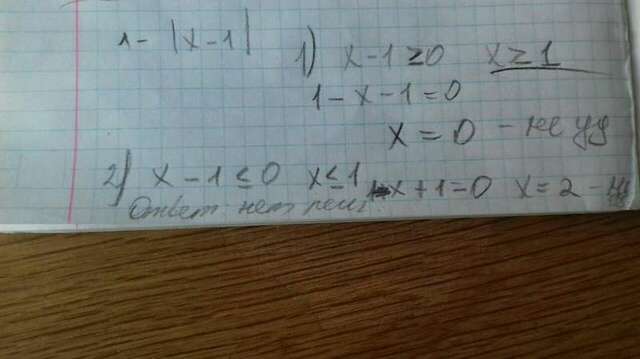 1 - |x-1|
1) x-1≥0 x≥1
1-x-1=0
x=0 - не уд
2) x-1≤0 x≤1 1-x+1=0 x=2 - не
Ответ нет реш.